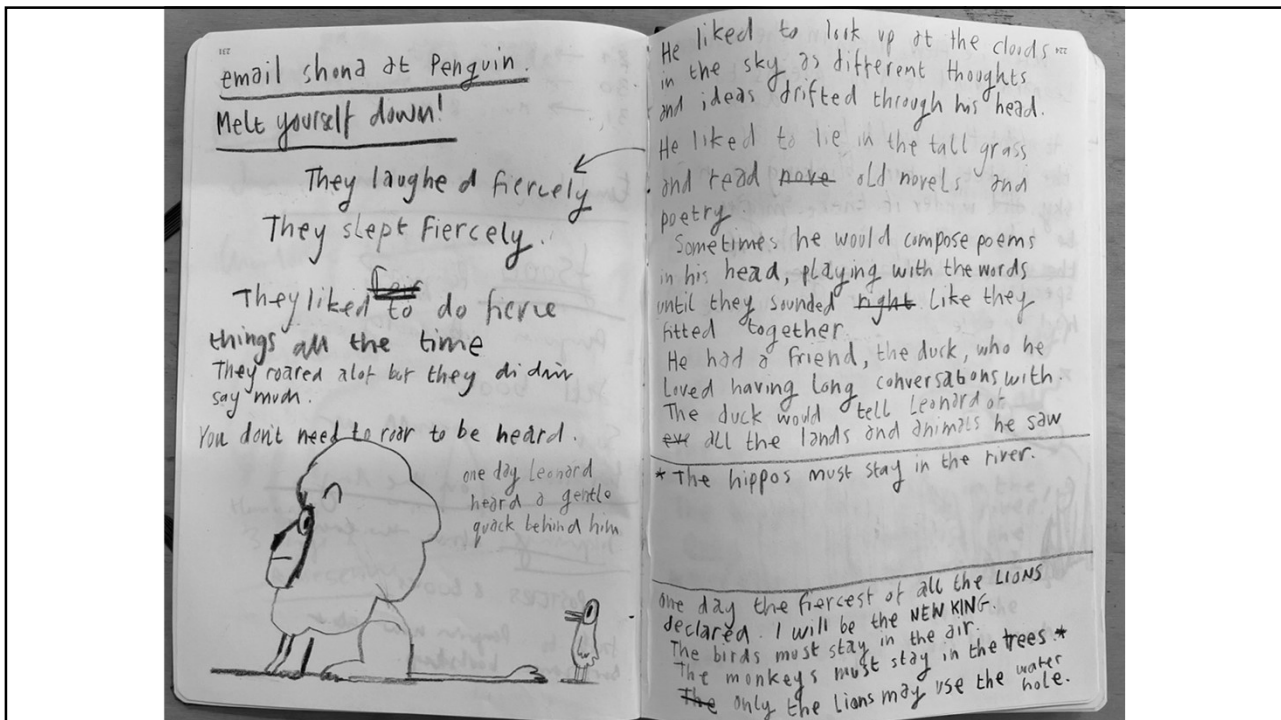 email shona at Penguin.
Melt yourself down!
They laughed fiercely
They slept fiercely.
They liked to do fierce
things all the time
They roared alot but they didnt
say much.
You don't need to roar to be heard.
one day Leonard
heard a gentle
quack behind him
He liked to look up at the clouds
in the sky as different thoughts
and ideas drifted through his head.
He liked to lie in the tall grass
and read nove old novels and
poetry.
Sometimes he would compose poems
in his head, playing with the words
until they sounded right like they
fitted together.
He had a friend, the duck, who he
loved having long conversations with.
The duck would tell Leonard of
eve all the lands and animals he saw
* The hippos must stay in the river.
one day the fiercest of all the LIONS
declared. I will be the NEW KING.
The birds must stay in the air.
The monkeys must stay in the trees *
The only the lions may use the water
hole.